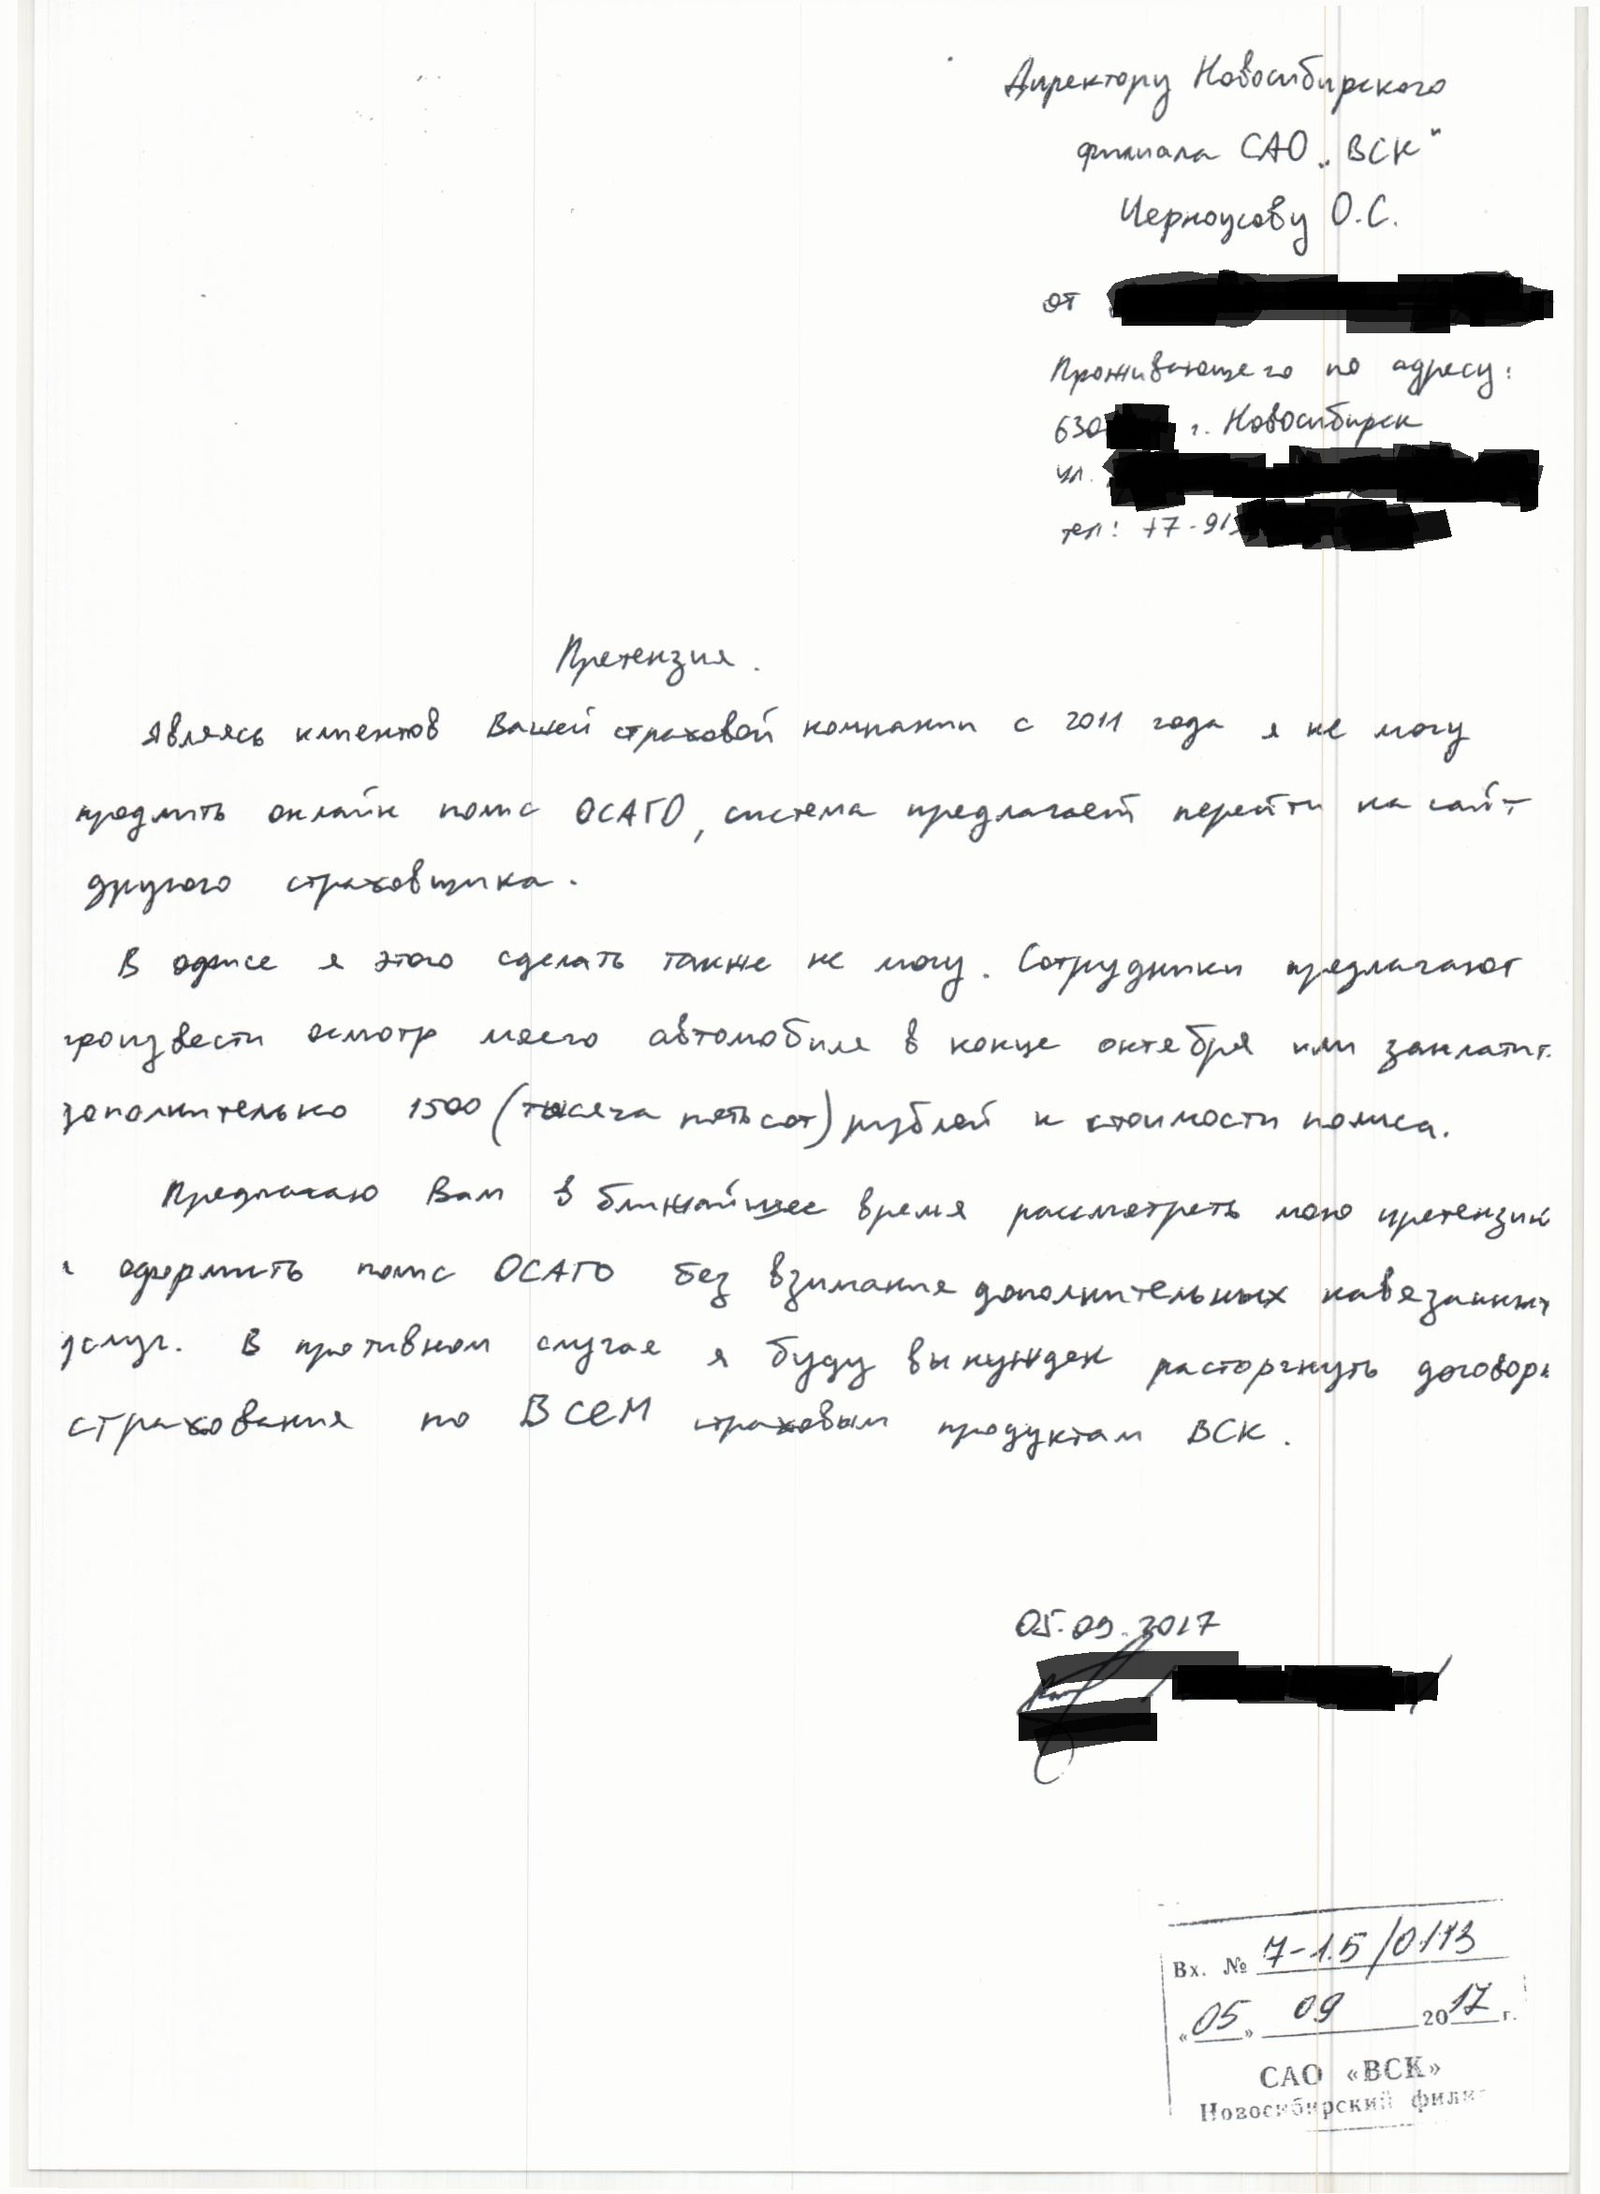 Директору Новосибирского
филиала САО „ВСК"
Черноусову О.С.
от
Проживающего по адресу:
630 г. Новосибирск
ул.
тел: +7-91
Претензия.
Являясь клиентов Вашей страховой компании с 2011 года я не могу
продлить онлайн полис ОСАГО, система предлагает перейти на сайт
другого страховщика.
В офисе я этого сделать также не могу. Сотрудники предлагают
произвести осмотр моего автомобиля в конце октября или заплатит
дополнительно 1500 (тысяча пятьсот) рублей к стоимости полиса.
Предлагаю Вам в ближайшее время рассмотреть мою претензию
и оформить полис ОСАГО без взимания дополнительных навязанных
услуг. В противном случае я буду вынужден расторгнуть договора
страхования по ВСЕМ страховым продуктам ВСК.
05.09.2017
Вх. № 7-1.5/0113
«05» 09 2017 г.
САО «ВСК»
Новосибирский фили